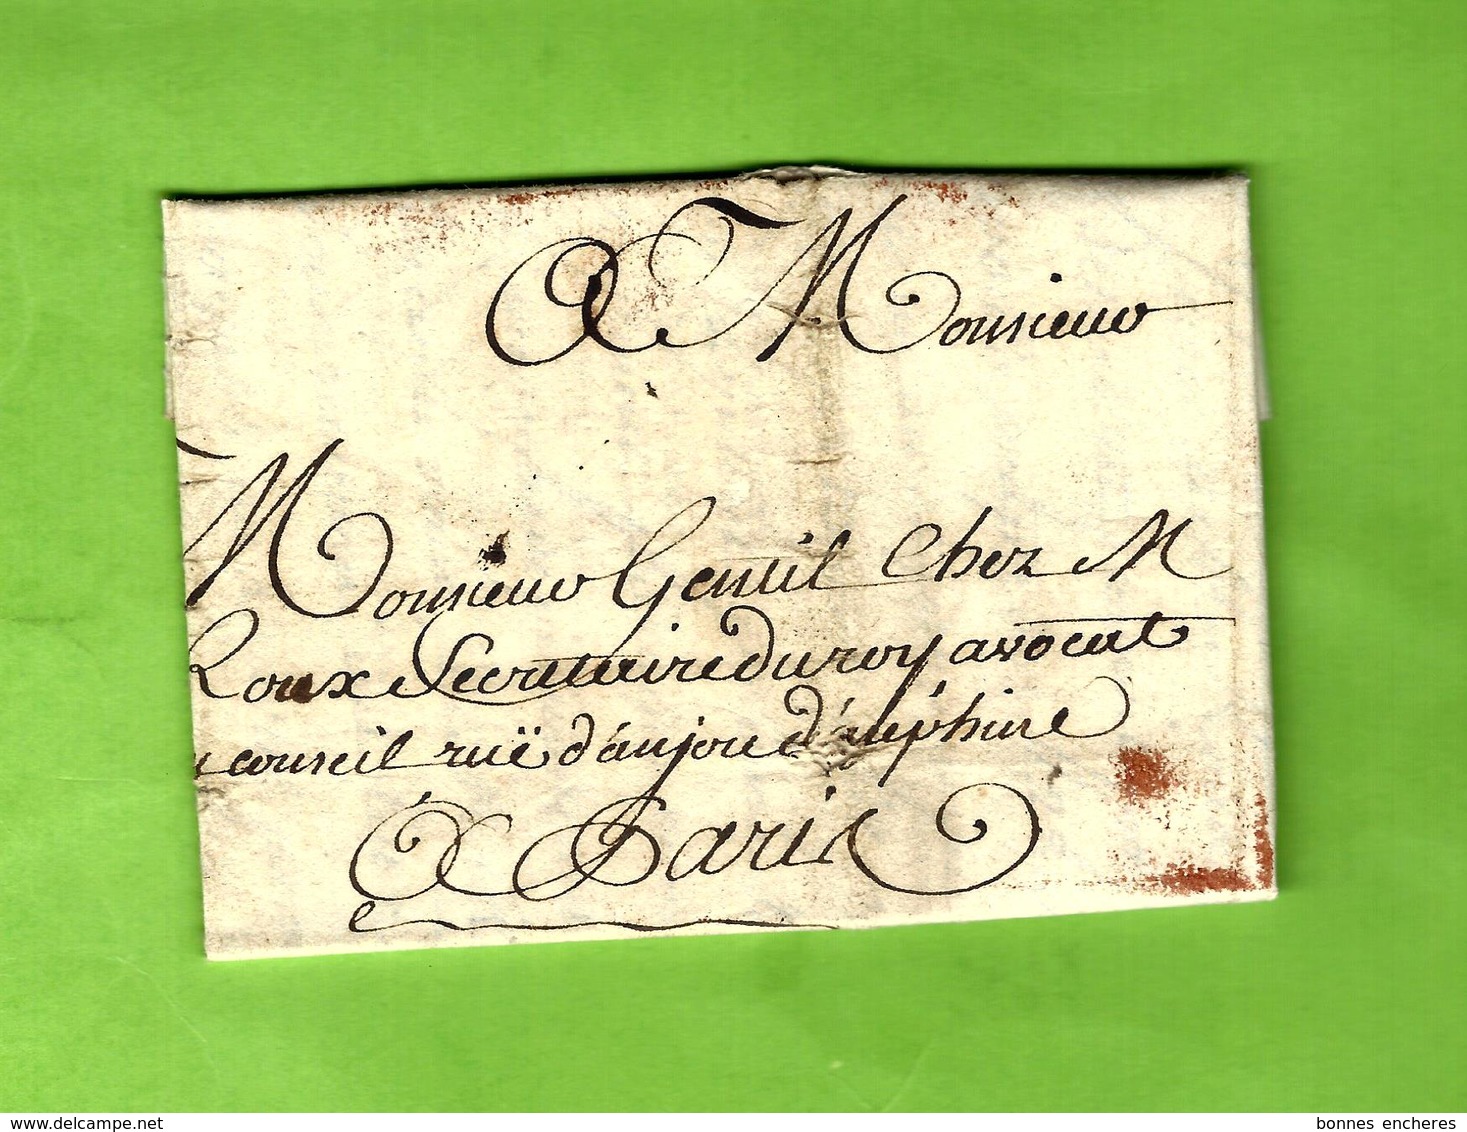 A Monsieur
Monsieur Gentil Chez M
Roux Secretaire du roy avocat
conseil ruë d'anjou d'auphine
A Paris
delcampe.net
bonnes encheres